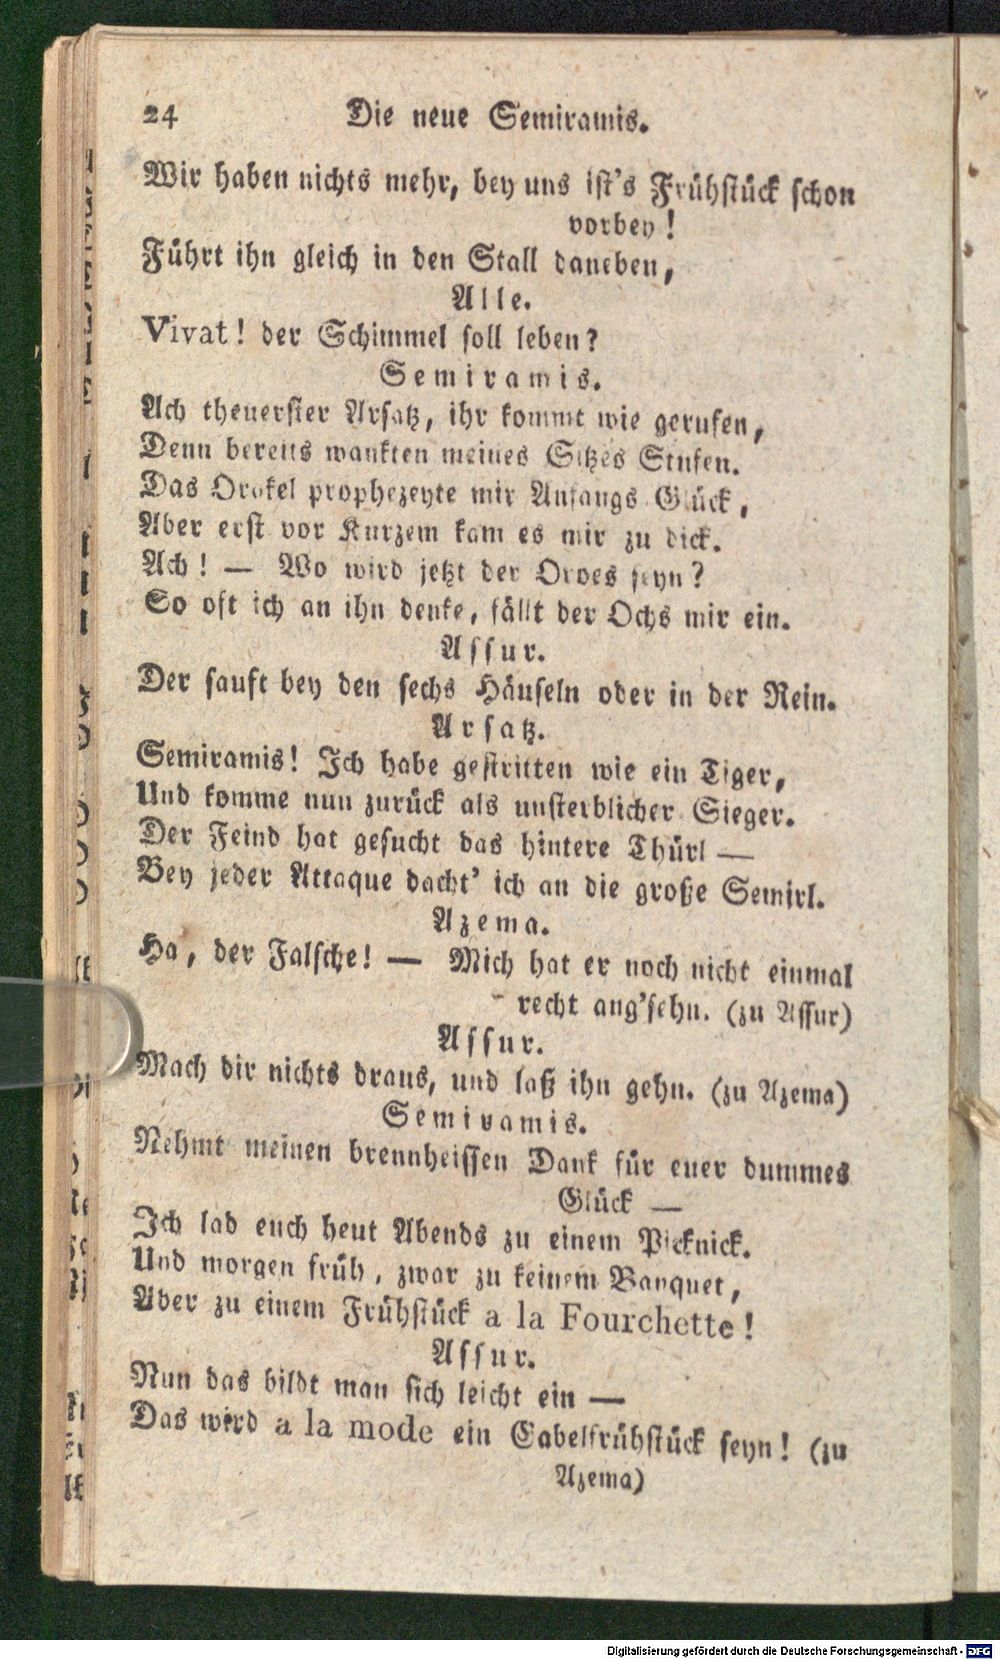 24 Die neue Semiramis.
Wir haben nichts mehr, bey uns ist's Frühstück schon
vorbey!
Führt ihn gleich in den Stall daneben,
Alle.
Vivat! der Schimmel soll leben?
Semiramis.
Ach theuerster Arsatz, ihr kommt wie gerufen,
Denn bereits wankten meines Sitzes Stufen.
Das Orakel prophezeyte mir Anfangs Glück,
Aber erst vor Kurzem kam es mir zu dick.
Ach! — Wo wird jetzt der Oroes seyn?
So oft ich an ihn denke, fällt der Ochs mir ein.
Assur.
Der sauft bey den sechs Häuseln oder in der Rein.
Arsatz.
Semiramis! Ich habe gestritten wie ein Tiger,
Und komme nun zurück als unsterblicher Sieger.
Der Feind hat gesucht das hintere Thürl —
Bey jeder Attaque dacht' ich an die große Semirl.
Azema.
Ha, der Falsche! — Mich hat er noch nicht einmal
recht ang'sehn. (zu Assur)
Assur.
Mach dir nichts draus, und laß ihn gehn. (zu Azema)
Semiramis.
Nehmt meinen brennheissen Dank für euer dummes
Glück —
Ich lad euch heut Abends zu einem Picknick.
Und morgen früh, zwar zu keinem Banquet,
Aber zu einem Frühstück a la Fourchette!
Assur.
Nun das bildt man sich leicht ein —
Das wird a la mode ein Gabelfrühstück seyn! (zu
Azema)
Digitalisierung gefördert durch die Deutsche Forschungsgemeinschaft - DFG